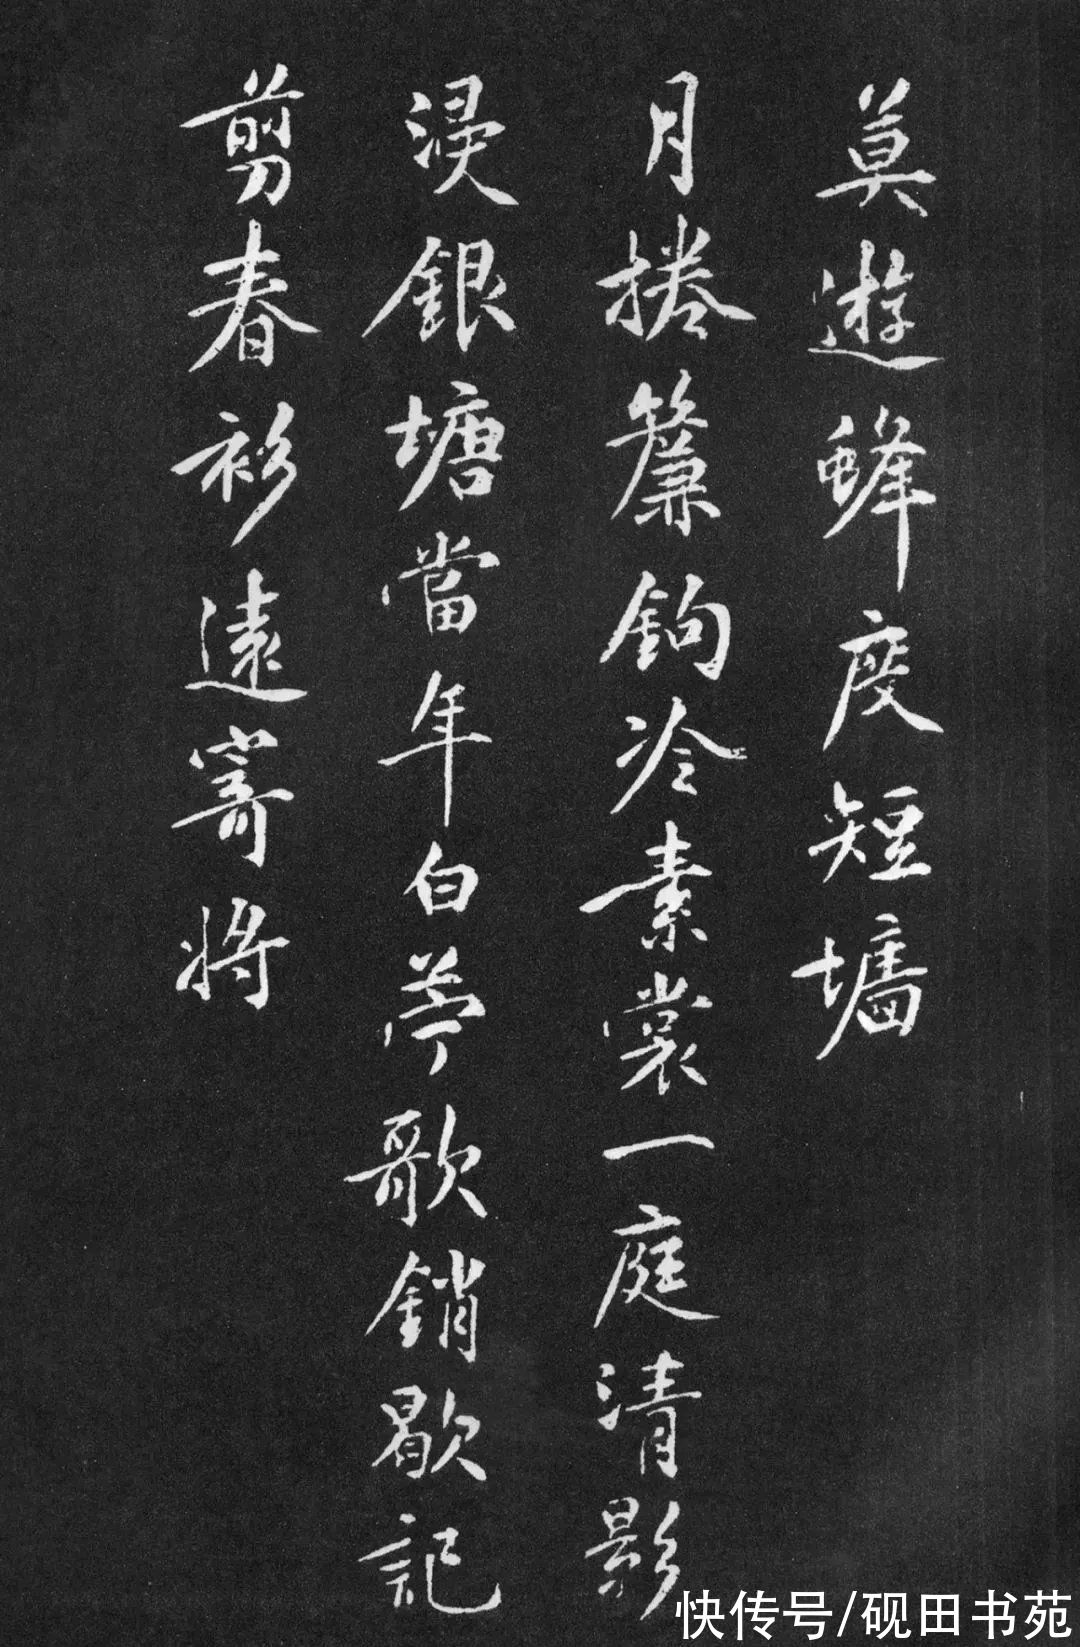 莫遊蜂度短墻
月捲簾鉤冷素裳一庭清影
浸銀塘當年白苧歌銷歇記
剪春衫遠寄將
快传号/砚田书苑